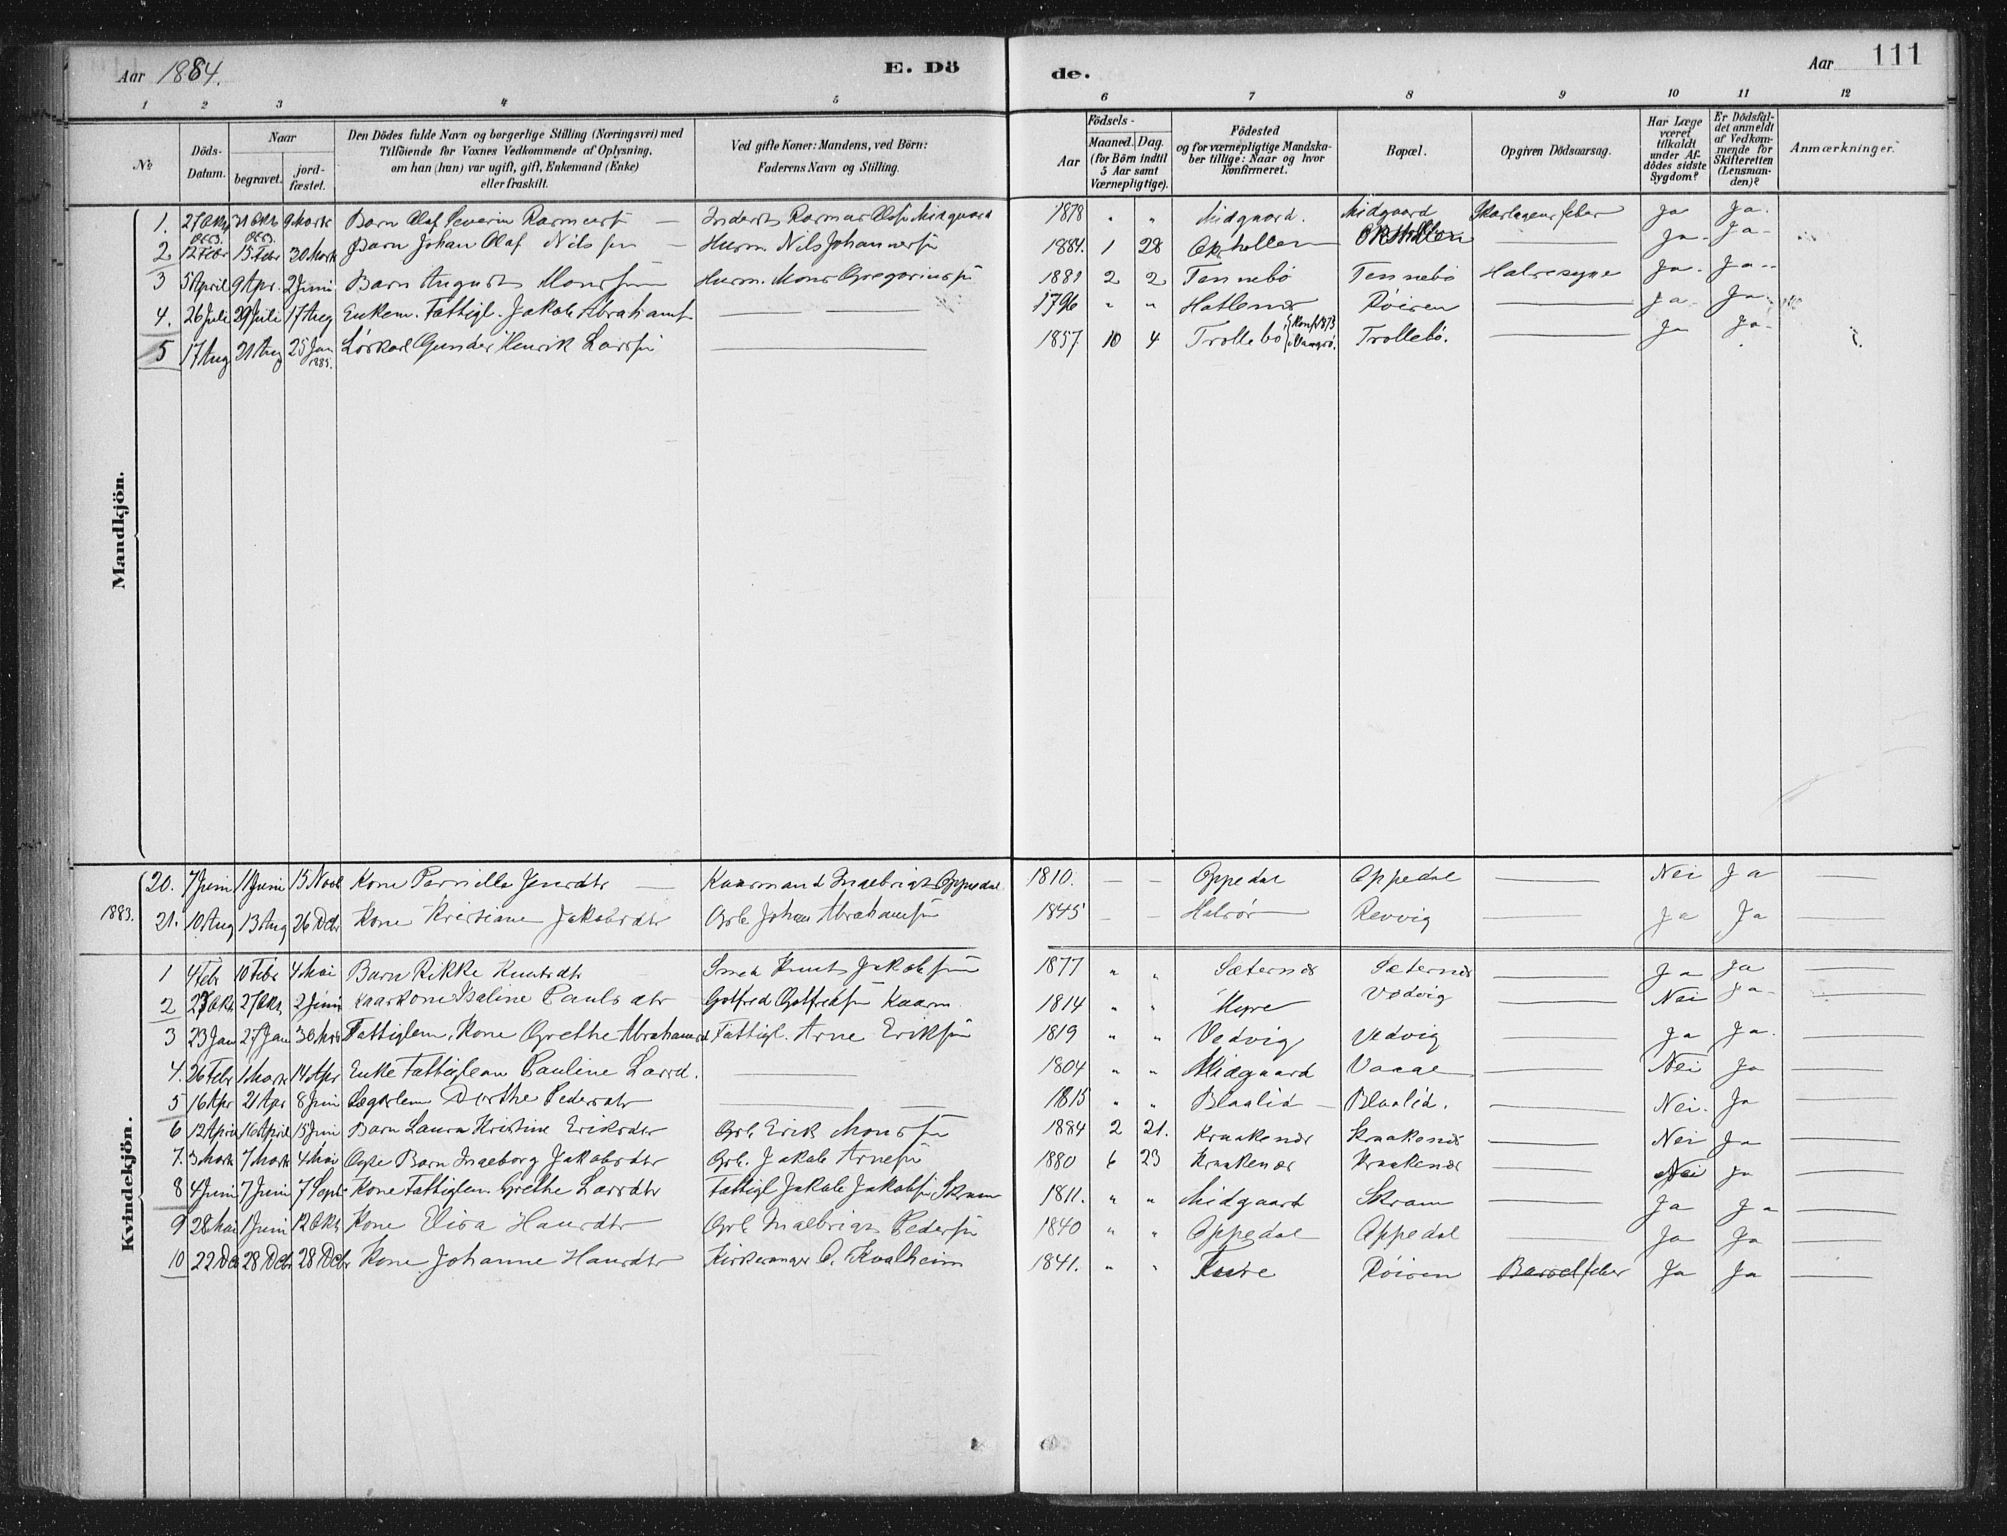 Aar 1884. E. Dö de. Aar 111
1 2 3 4 5 6 7 8 9 10 11 12
No
Döds-Datum.
Naar
begravet. jordfæstet.
Den Dödes fulde Navn og borgerlige Stilling (Næringsvei) med
Tilföiende for Voxnes Vedkommende af Oplysning,
om han (hun) var ugift, gift, Enkemand (Enke)
eller fraskilt.
Ved gifte Koner: Mandens, ved Börn:
Faderens Navn og Stilling.
Födsels-
Aar Maaned. Dag.
(for Börn indtil
5 Aar samt
Værnepligtige).
Födested
og for værnepligtige Mandskaber tillige: Naar og hvor
konfirmeret.
Bopæl.
Opgiven Dödsaarsag.
Har Læge
været
tilkaldt
under Afdödes sidste
Sygdom?
Er Dödsfaldet anmeldt
af Vedkommende for
Skifteretten
(Lensmanden)?
Anmærkninger.
Mandkjön.
1. 27 Okt 31 Okt 9 Marts Barn Olaf Severin Rasmus — Inderst Rasmus Midgaard 1878 " " Midgaard. Midgaard Skarlagensfeber Ja Ja.
2 12 Febr 15 Febr 30 Marts Barn Johan Olaf Nilssen — Husm. Nils Johannes 1884. 1 28 Ja. Ja
3 5 April 9 Apr. 2 Juni Barn August Monssen Husm. Mons Gregorius 1881 2 2 Tennebø Tennebø Halssyge Ja. Ja
4. 26 Juli 29 Juli 17 Aug Enkem. Fattigl. Jakob Abrahams 1796 " " Hatlenæs Røisen Ja. Ja
5 17 Aug 21 Aug 25 Jan 1885. Løskarl Gunder Henrik Lars 1857 10 4 Trollebø Konf. 1873 Trollebø. Ja Ja
Kvindekjön.
20. 7 Juni 11 Juni Kone Pernille Jensdtr — Kaarmand Ingebrigt Oppedal 1810. — — Oppedal Oppedal Nei Ja
1883. 21. 10 Aug 13 Aug 26 Dcbr Kone Kristiane Jakobsdtr Grb. Johan Abraham 1845 — — Halsør Revvig Ja Ja
1 4 Febr 10 Febr 4 Mai Barn Rikke Knutsdtr Smed Knut Jakobsen 1877 " " Sæternæs Sæternæs Ja Ja
2 27 Okt 2 Juni Kaarkone Iseline Paulsdtr Gotfred Gotfred Kaarm 1814 " " Myre Vedvig Nei Ja
3 23 Jan 27 Jan 30 Mrts Fattiglem. Kone Grethe Abrahamsd Fattigl. Arne Eriksen 1819 " " Vedvig Vedvig Ja Ja.
4. 26 Febr 1 Mart 14 Apr Enke Fattiglem Pauline Larsd. 1804 " " Midgaard Vaage Nei Ja
5 16 Apr 21 Apr 8 Juni Lægslem Dorthe Pedersdtr 1815 " " Blaalid — Blaalid. Nei. Ja
6 12 April 16 April 15 Juni Barn Laura Kristine Eriksdtr Grb. Erik Monssen 1884 2 21. Kraakenæs Kraakenæs Nei Ja
7. 3 Marts 7 Marts 4 Mai Barn Ingeborg Jakobsdtr Grb. Jakob Arnesen 1880 6 23 Kraakenæs Kraakenæs Nei Ja
8 4 Juni 7 Juni 7 Septr Kone Fattiglem. Grethe Larsdtr Fattigl Jakob Jakobsen Skram 1811. " " Midgaard Skram Ja Ja
9 28 Mai 1 Juni 12 Okt Kone Elisa Hansdtr Grb Ingebrigt Pedersen 1840 " " Oppedal Oppedal Ja Ja
10 22 Dcb 28 Dcbr 28 Dcbr Kone Johanne Hansdtr Kirkesanger O. Kvalheim 1841. " " Røisen Barselfeber Ja Ja